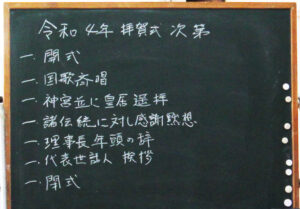 令和4年 拝賀式 次第
一、開式
一、国歌斉唱
一、神宮並に皇居遥拝
一、諸伝統に対し感謝黙想
一、理事長年頭の辞
一、代表世話人 挨拶
一、閉式